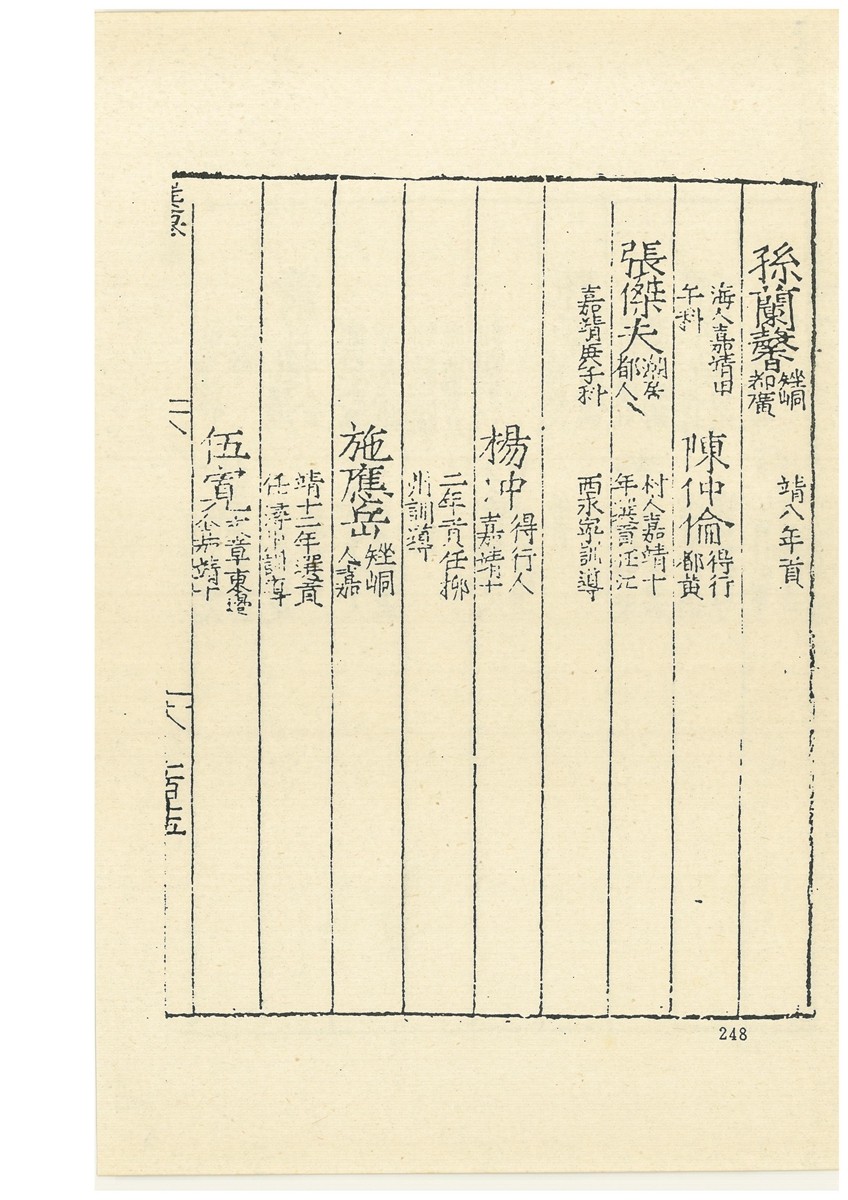 孫蘭馨矬峒都廣
靖八年貢
海人嘉靖
午科
陳仲倫得行都黄
村人嘉靖十
年選貢任江
張傑夫潮居都人
嘉靖庚子科
西永寧訓導
楊冲得行人嘉靖十
二年貢任柳
州訓導
施應岳矬峒人嘉
靖十二年選貢
任潯州訓導
伍寬文章東邊人嘉靖十
248